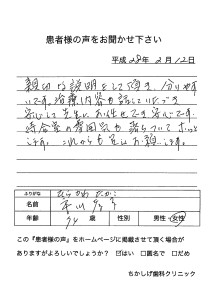 患者様の声をお聞かせ下さい
平成 28年 2月12日
親切な説明をして頂き、分りやす
いです。治療内容も話していただき
安心して先生に お任せできます。
待合室の雰囲気も落ちついて ホッと
します。これからも宜しくお願いします。
ふりがな
名前
年齢 74 歳 性別 男性・女性
この『患者様の声』をホームページに掲載させて頂く場合が
ありますがよろしいでしょうか? ☑はい □匿名で □だめ
ちかしげ歯科クリニック